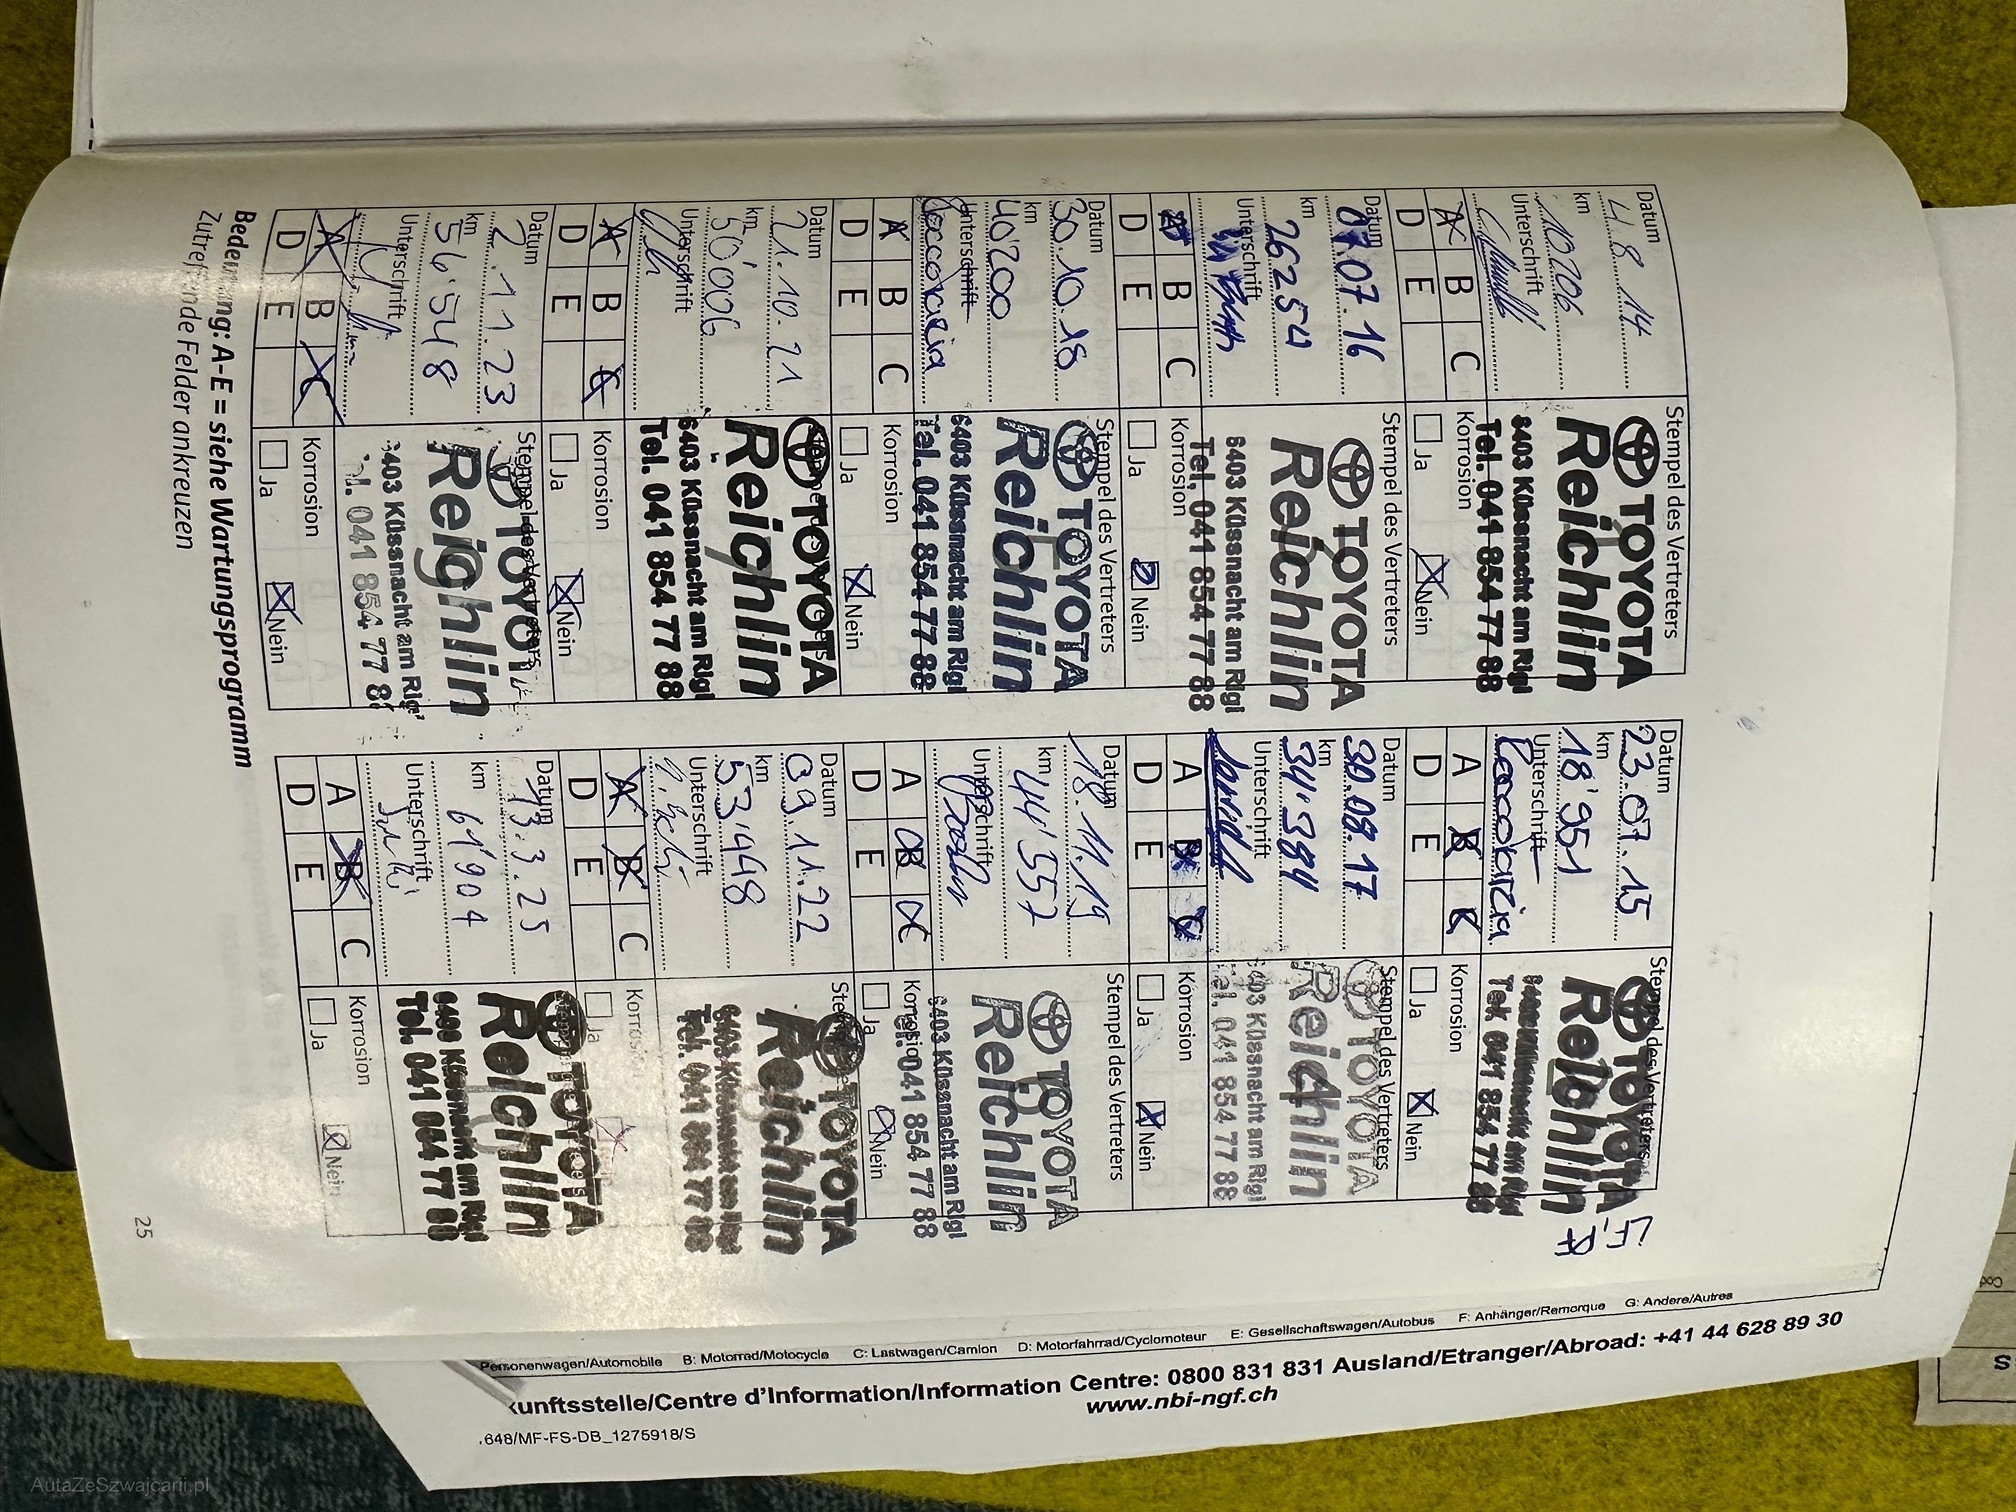 Datum
4.8.14
km
10206
Unterschrift
A B C
D E
Stempel des Vertreters
TOYOTA
Reichlin
6403 Küssnacht am Rigi
Tel. 041 854 77 88
Korrosion
Ja Nein
Datum
23.07.15
km
18'951
Unterschrift
A B C
D E
Stempel des Vertreters
TOYOTA
Reichlin
Tel. 041 854 77 88
Korrosion
Ja Nein
LF, PF
Datum
07.07.16
km
26254
Unterschrift
A B C
D E
Stempel des Vertreters
TOYOTA
Reichlin
6403 Küssnacht am Rigi
Tel. 041 854 77 88
Korrosion
Ja Nein
Datum
30.08.17
km
34.384
Unterschrift
A B C
D E
Stempel des Vertreters
TOYOTA
Reichlin
6403 Küssnacht am Rigi
Tel. 041 854 77 88
Korrosion
Ja Nein
Datum
30.10.18
km
40'200
Unterschrift
A B C
D E
Stempel des Vertreters
TOYOTA
Reichlin
6403 Küssnacht am Rigi
Tel. 041 854 77 88
Korrosion
Ja Nein
Datum
18.11.19
km
44'557
Unterschrift
A B C
D E
Stempel des Vertreters
TOYOTA
Reichlin
6403 Küssnacht am Rigi
Tel. 041 854 77 88
Korrosion
Ja Nein
Datum
21.10.21
km
50'006
Unterschrift
A B C
D E
TOYOTA
Reichlin
6403 Küssnacht am Rigi
Tel. 041 854 77 88
Korrosion
Ja Nein
Datum
09.11.22
km
53'448
Unterschrift
A B C
D E
TOYOTA
Reichlin
Korrosion
Ja
Datum
2.11.23
km
56.548
Unterschrift
A B C
D E
Stempel des Vertreters
TOYOTA
Reichlin
6403 Küssnacht am Rigi
041 854 77 8
Korrosion
Ja Nein
Datum
13.3.25
km
61'904
Unterschrift
A B C
D E
TOYOTA
Reichlin
6403 Küssnacht am Rigi
Tel. 041 854 77 88
Korrosion
Ja Nein
Bedeutung: A-E = siehe Wartungsprogramm
Zutreffende Felder ankreuzen
25
Personenwagen/Automobile B: Motorrad/Motocycle C: Lastwagen/Camion D: Motorfahrrad/Cyclomoteur E: Gesellschaftswagen/Autobus F: Anhänger/Remorque G: Andere/Autres
kunftsstelle/Centre d'Information/Information Centre: 0800 831 831 Ausland/Etranger/Abroad: +41 44 628 89 30
www.nbi-ngf.ch
.648/MF-FS-DB_1275918/S
AutaZeSzwajcarii.pl